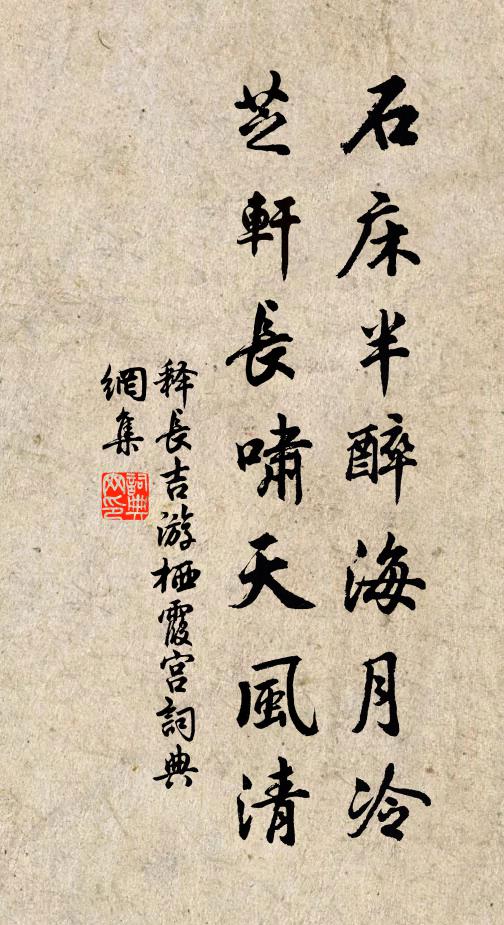 石床半醉海月冷
芝軒長嘯天風清
释長吉游栖霞宫詞典
網集
詞典
网印